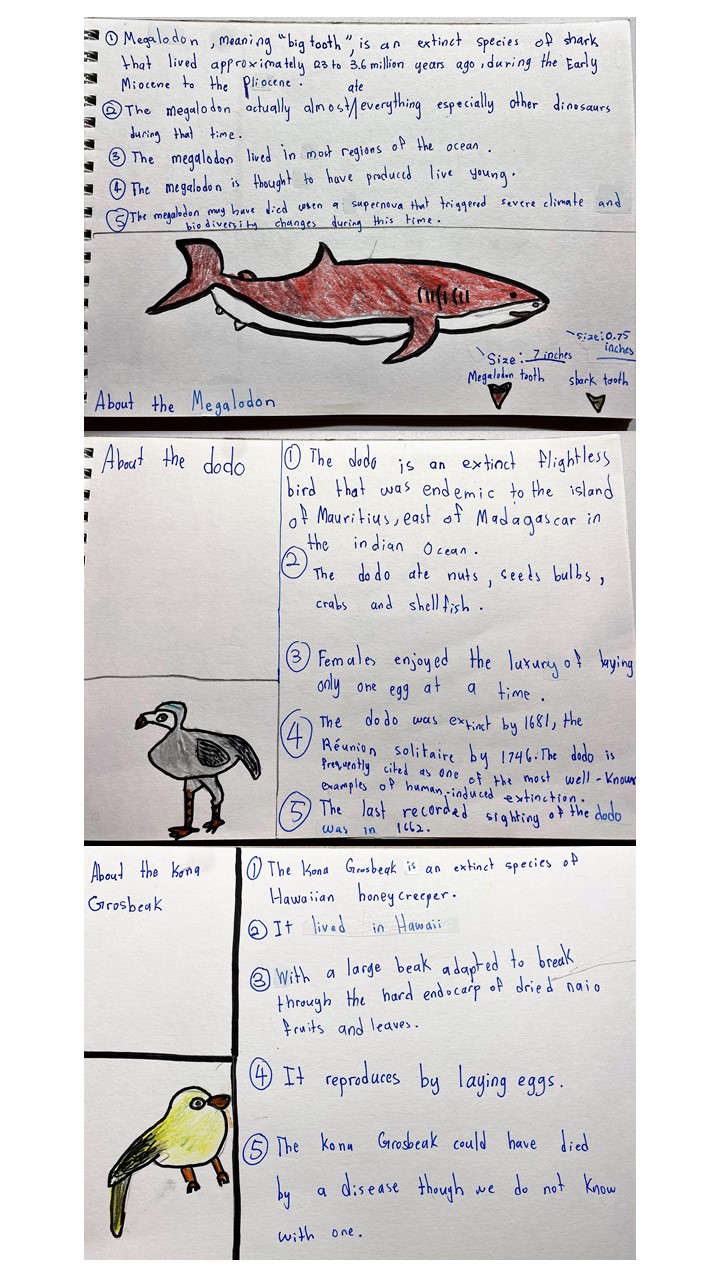 ① Megalodon, meaning "big tooth", is an extinct species of shark
that lived approximately 23 to 3.6 million years ago, during the Early
Miocene to the Pliocene.
ate
② The megalodon actually almost/everything especially other dinosaurs
during that time.
③ The megalodon lived in most regions of the ocean.
④ The megalodon is thought to have produced live young.
⑤ The megalodon may have died when a supernova that triggered severe climate and
biodiversity changes during this time.
Size: 7 inches
Size: 0.75
inches
Megalodon tooth
shark tooth
About the Megalodon
About the dodo
① The dodo is an extinct flightless
bird that was endemic to the island
of Mauritius, east of Madagascar in
the indian Ocean.
② The dodo ate nuts, seeds bulbs,
crabs and shellfish.
③ Females enjoyed the luxury of laying
only one egg at a time.
④ The dodo was extinct by 1681, the
Réunion solitaire by 1746. The dodo is
frequently cited as one of the most well-known
examples of human-induced extinction.
⑤ The last recorded sighting of the dodo
was in 1662.
About the Kona
Grosbeak
① The Kona Grosbeak is an extinct species of
Hawaiian honeycreeper.
② It lived in Hawaii
③ With a large beak adapted to break
through the hard endocarp of dried naio
fruits and leaves.
④ It reproduces by laying eggs.
⑤ The kona Grosbeak could have died
by a disease though we do not know
with one.